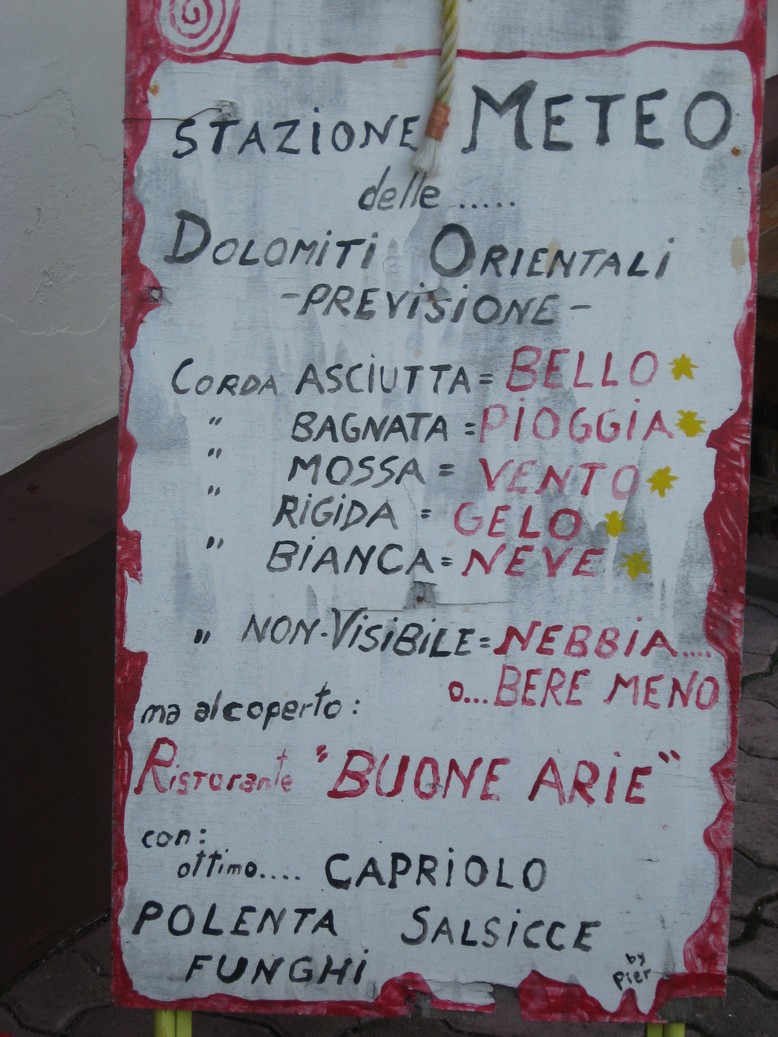 STAZIONE METEO
delle .....
DOLOMITI ORIENTALI
-PREVISIONE-
CORDA ASCIUTTA = BELLO
" BAGNATA = PIOGGIA
" MOSSA = VENTO
" RIGIDA = GELO
" BIANCA = NEVE
" NON-VISIBILE = NEBBIA....
o... BERE MENO
ma al coperto :
Ristorante "BUONE ARIE"
con:
ottimo.... CAPRIOLO
POLENTA SALSICCE
FUNGHI
by
Pier